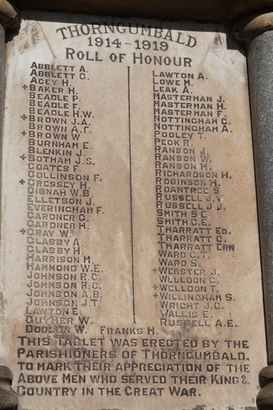 THORNGUMBALD
1914-1919
ROLL OF HONOUR
ABBLETT A.
ABBLETT C.
ACEY H.
+BAKER H.
BEADLE P.
BEADLE F.
BEADLE H.W.
+BROWN J.A.
BROWN A.P.
+BROWN W
BURNHAM E.
BLENKIN J.
+BOTHAM J.S.
COATES F.
COLLINSON F.
+CRESSEY H.
DIBNAH W.B.
ELLETSON J.
EVERINGHAM F.
GARDNER C.
GARDNER H
+GRAY W
GLASBY A
GLASBY H
HARRISON M.
HAMMOND W.E.
JOHNSON R.C.
JOHNSON H.C.
JOHNSON A.B.
JOHNSON J.T
LAWTON E.
GUYHER W.
DODSON W.
LAWTON A.
LOWE M.
LEAK A.
MASTERMAN J.
MASTERMAN H.
MASTERMAN F.
NOTTINGHAM C.
NOTTINGHAM A.
POOLEY T.
PECK R.
RANSON J.
RANSON W.
RANSON H.
RICHARDSON H.
ROBINSON H.
ROANTREE S.
RUSSELL J.Y.
RUSSELL J.J.
SMITH S.E
SMITH C.E.
THARRATT ED.
THARRATT C.
THARRATT ERN
WARD C.T.
WARD S.
+WEBSTER J.
WELLDON C.
+WELLDON T.
+WILLINGHAM S.
WRIGHT J.C.
WALLIS E.
RUSSELL A.E.
FRANKS H.
THIS TABLET WAS ERECTED BY THE
PARISHIONERS OF THORNGUMBALD.
TO MARK THEIR APPRECIATION OF THE
ABOVE MEN WHO SERVED THEIR KING &
COUNTRY IN THE GREAT WAR.